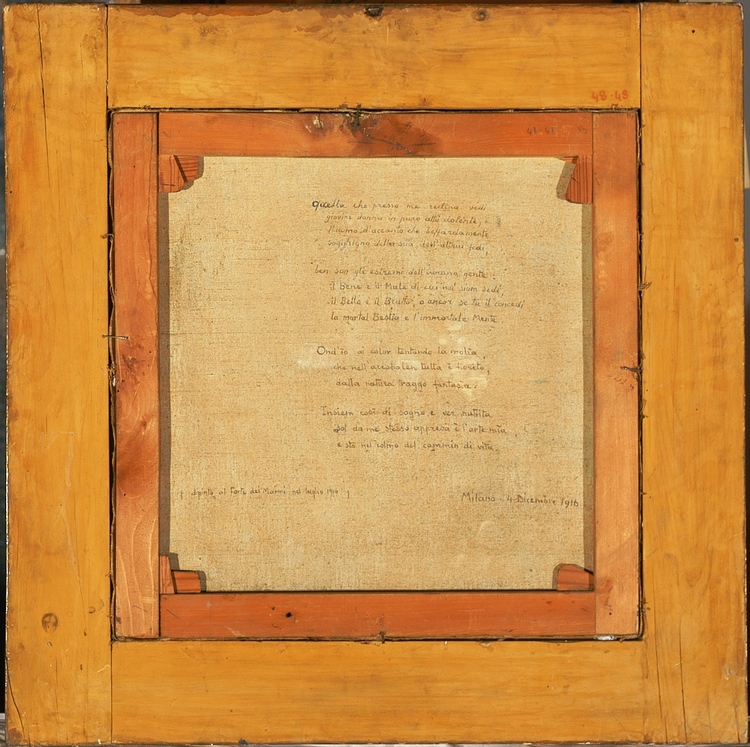 48-48
41-41
Questa che presso me reclina vedi
giovine donna in puro atto dolente, e
l'uomo d'accanto che beffardamente
sogghigna della sua dell'altrui fede,
ben son gli estremi dell'umana gente:
il Bene e il Male di cui noi siam sedi,
il Bello e il Brutto, o ancor se tu il concedi
la mortal Bestia e l'immortale Mente.
Ond'io ai color tentando la
che nell' tutta è fiorita,
dalla natura traggo fantasia.
Insiem così di sogno e ver nutrita
sol da me stesso appresa è l'arte mia
e sto nel colmo del cammin di vita.
( dipinto al Forte dei Marmi nel luglio )
Milano - 4 Dicembre 1916